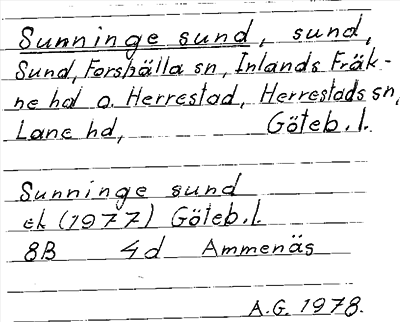 Sunninge sund, sund,
Sund, Forshälla sn, Inlands Fräk-
ne hd o. Herrestad, Herrestads sn,
Lane hd, Göteb. l.
Sunninge sund
ek (1977) Göteb. l.
8B 4d Ammenäs
A.G. 1978.